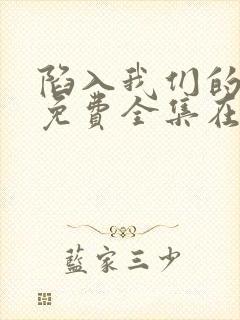 陷入我们的
免費全集在
藍家三少